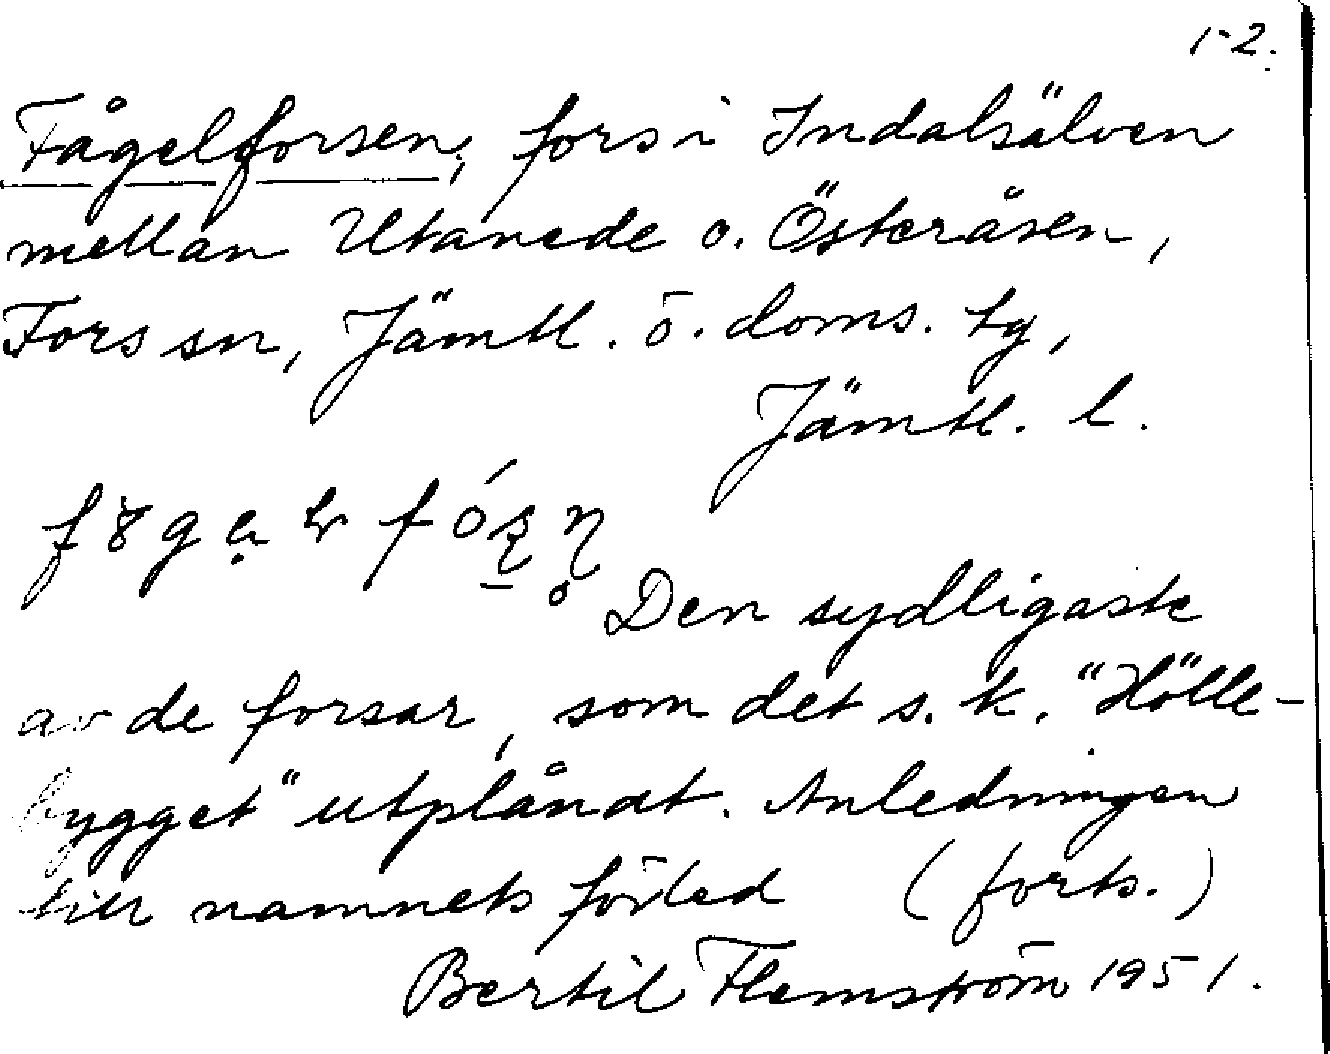 1-2.
Fågelforsen, fors i Indalsälven
mellan Utanede o. Österåsen,
Fors sn, Jämtl. ö. doms. tg,
Jämtl. l.
Den sydligaste
av de forsar, som det s. k. "Hölle-
bygget" utplånat. Anledningen
till namnets förled (forts.)
Bertil Flemström 1951.